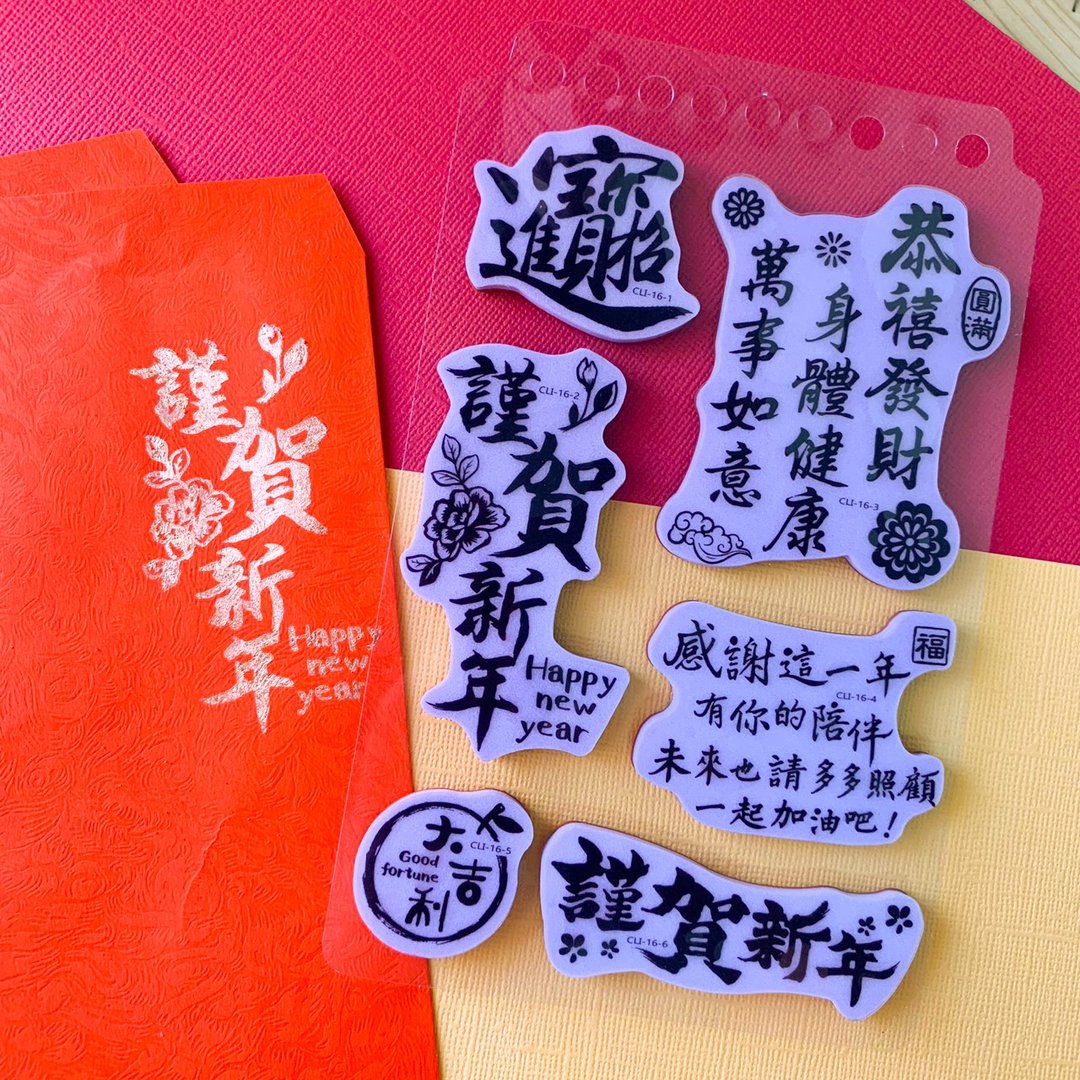 謹賀新年
Happy
new
year
招財進寶
CLI-16-1
謹賀新年
CLI-16-2
Happy
new
year
恭禧發財
身體健康
萬事如意
圓滿
CLI-16-3
福
感謝這一年
CLI-16-4
有你的陪伴
未來也請多多照顧
一起加油吧！
大吉利
Good
fortune
CLI-16-5
謹賀新年
CLI-16-6